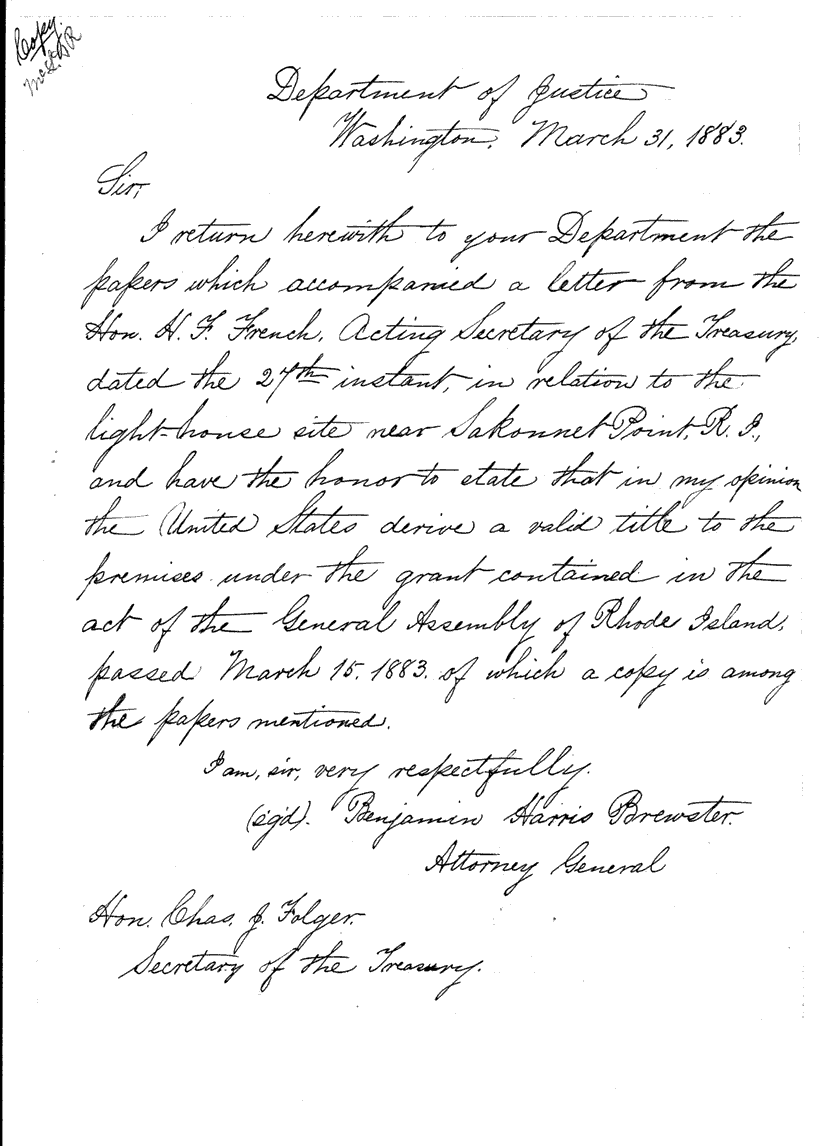 Copy.
Department of Justice
Washington, March 31, 1883.
Sir,
I return herewith to your Department the
papers which accompanied a letter from the
Hon. H. F. French, Acting Secretary of the Treasury,
dated the 27th instant, in relation to the
light-house site near Sakonnet Point, R. I.,
and have the honor to state that in my opinion
the United States derive a valid title to the
premises under the grant contained in the
act of the General Assembly of Rhode Island,
passed March 15, 1883, of which a copy is among
the papers mentioned.
I am, sir, very respectfully.
(sg'd). Benjamin Harris Brewster.
Attorney General
Hon. Chas. J. Folger.
Secretary of the Treasury.